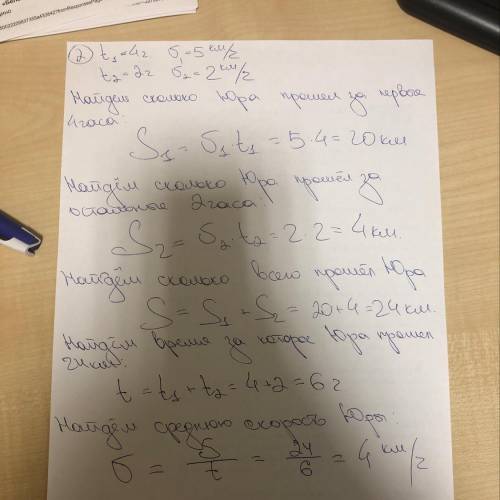 ② t₁=4г σ₁=5 км/г
t₂=2г σ₂=2 км/г
Найдём сколько Юра прошел за первые
4 часа:
S₁ = σ₁·t₁ = 5·4 = 20 км
Найдём сколько Юра прошёл за
остальные 2 часа:
S₂ = σ₂·t₂ = 2·2 = 4 км.
Найдём сколько всего прошёл Юра
S = S₁ + S₂ = 20+4=24 км.
Найдём время за которое Юра прошел
24 км:
t = t₁+t₂ = 4+2=6 г
Найдём среднюю скорость Юры:
σ = S/t = 24/6 = 4 км/г